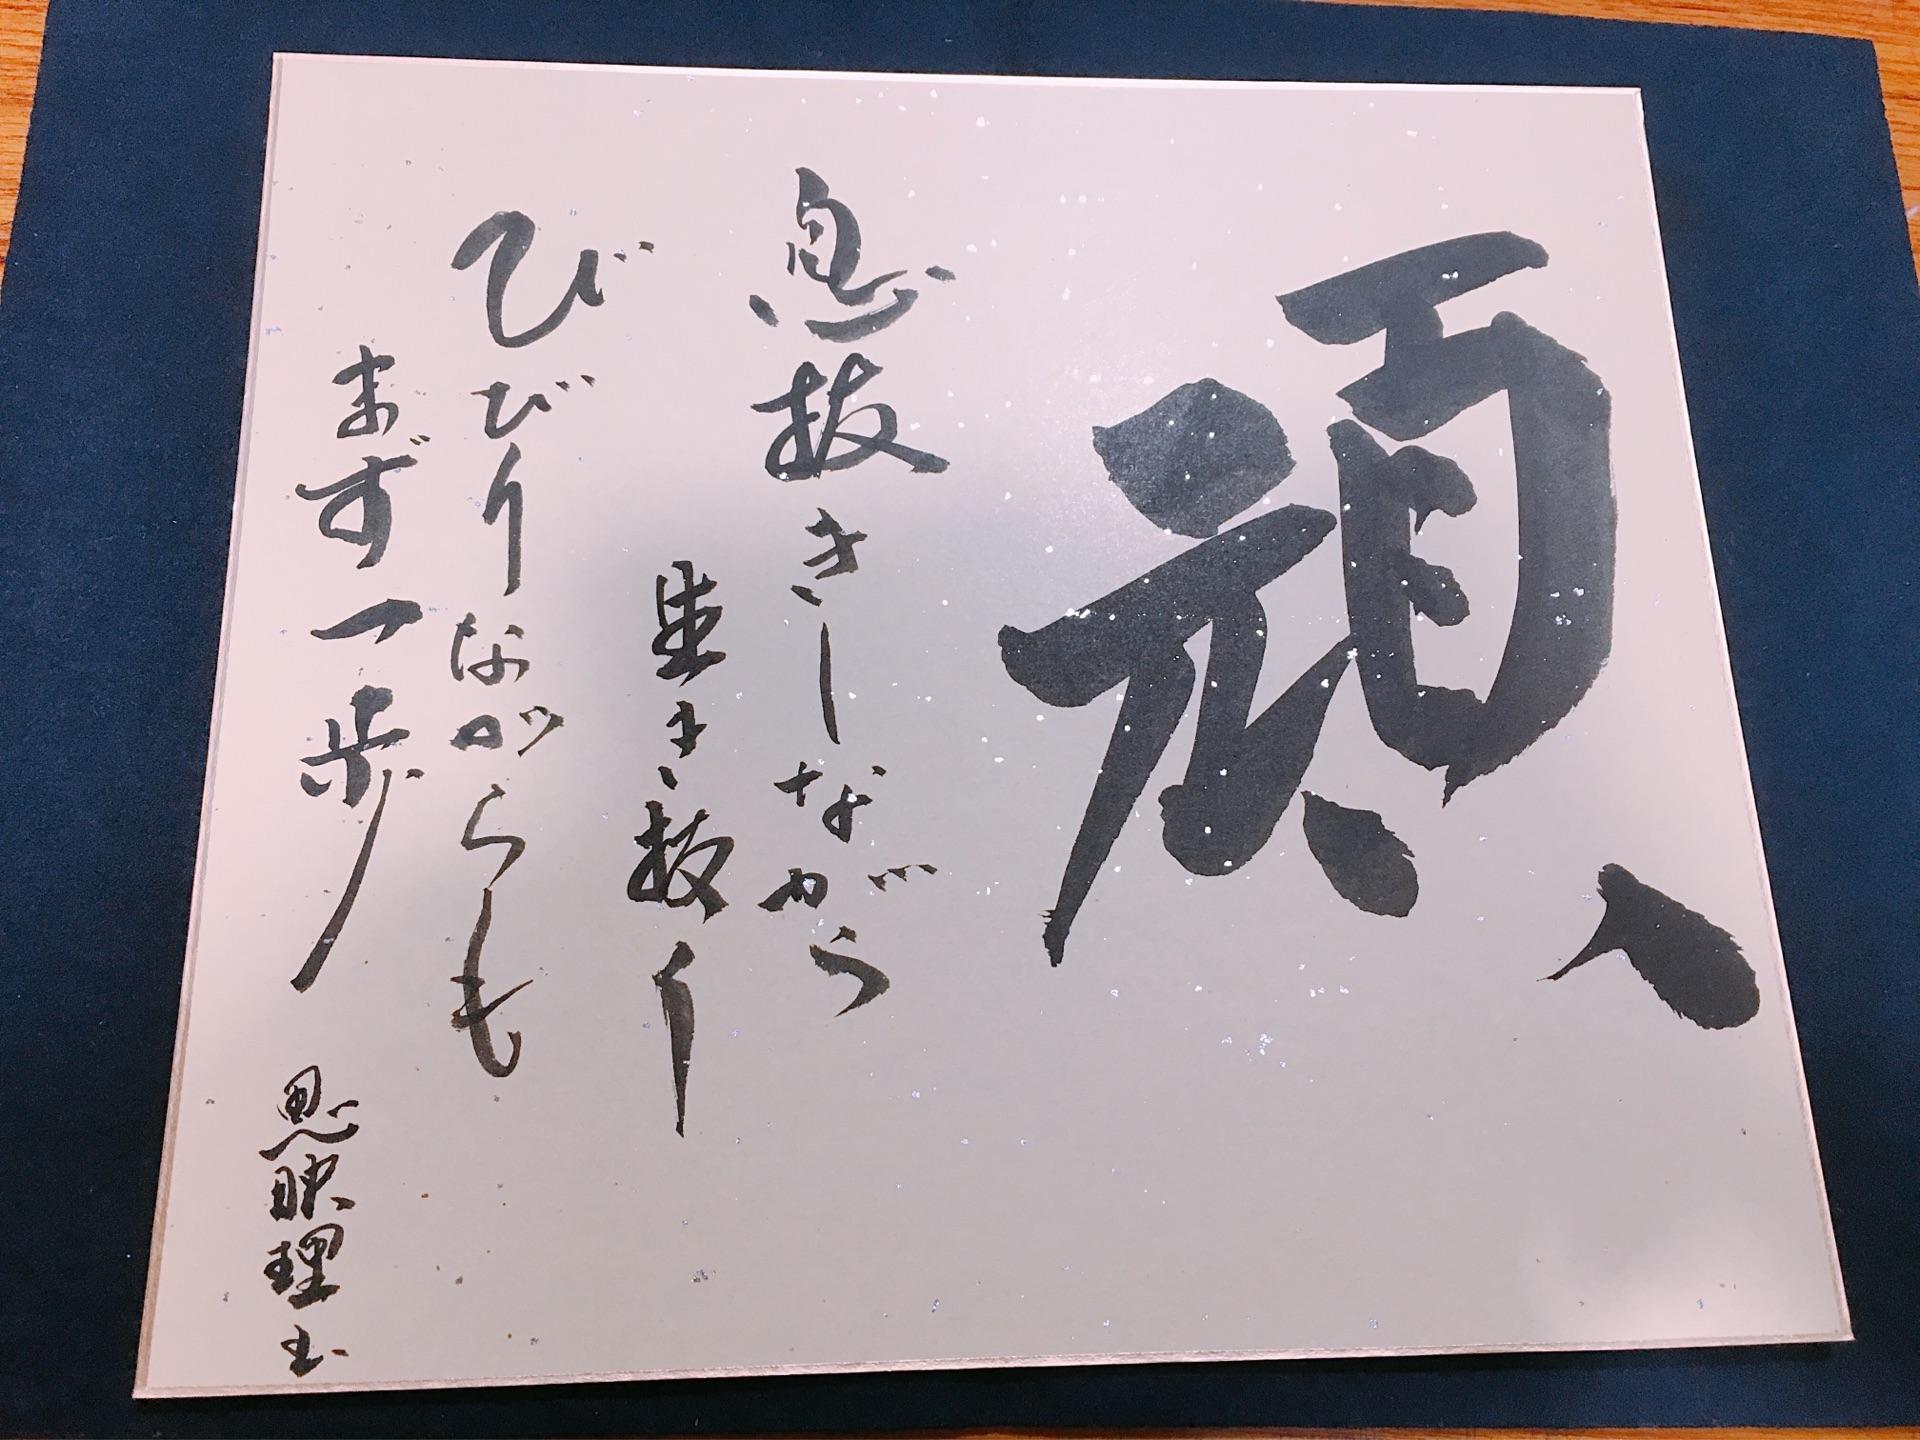 頑
息抜きしながら
生き抜く
びびりながらも
まず一歩
恩眯理士